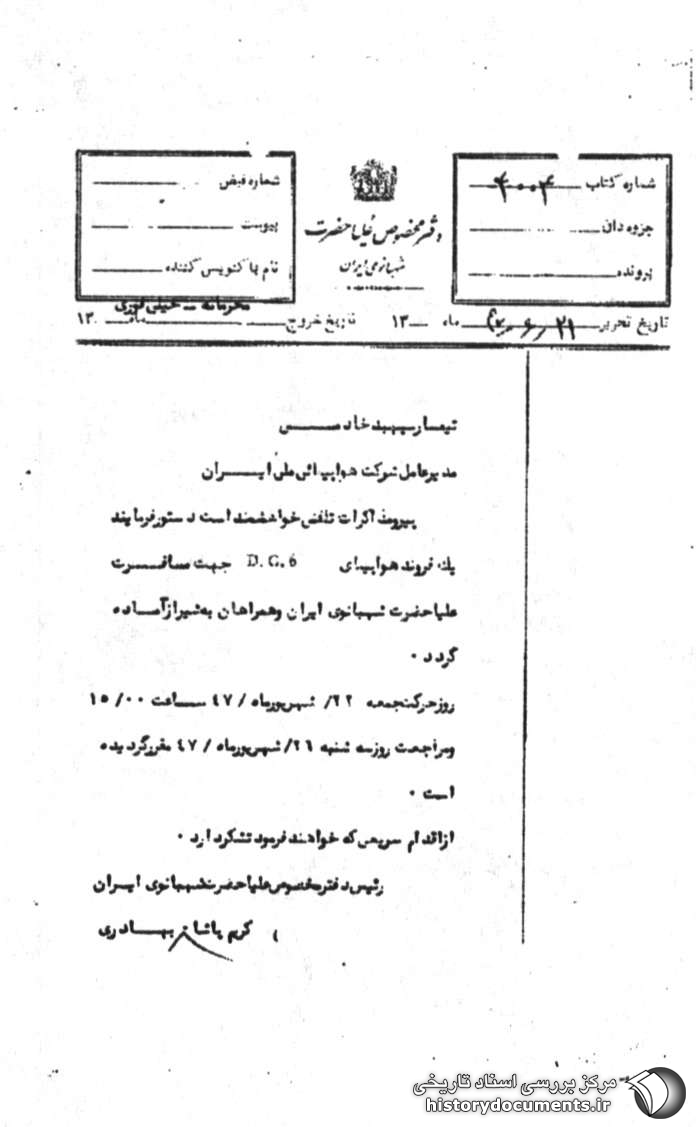 شماره کتاب ۴۰۰۴
جزوه دان
پرونده
دفتر مخصوص علیاحضرت
شهبانوی ایران
شماره قبض
پیوست
نام پاکنویس کننده
محرمانه - خیلی فوری
تاریخ تحریر ۲۱ ر ۶ ر ۴۷ ماه ۱۳ تاریخ خروج ماه ۱۳
تیمسار سپهبد خادمـــی
مدیرعامل شرکت هواپیمائی ملی ایـــران
پیرو مذاکرات تلفنی خواهشمند است دستور فرمایند
یک فروند هواپیمای D.C.6 جهت مسافـــرت
علیاحضرت شهبانوی ایران و همراهان به شیراز آمـاده
گردد ۰
روز حرکت جمعه ۲۲/ شهریورماه / ۴۷ ســاعت ۱۵/۰۰
ومراجعت روز سه شنبه ۲۶/ شهریورماه / ۴۷ مقرر گردیده
است ۰
از اقدام سریعی که خواهند فرمود تشکر دارد ۰
رئیس دفتر مخصوص علیاحضرت شهبانوی ایـران
کریم پاشا بهــادری
مرکز بررسی اسناد تاریخی
historydocuments.ir